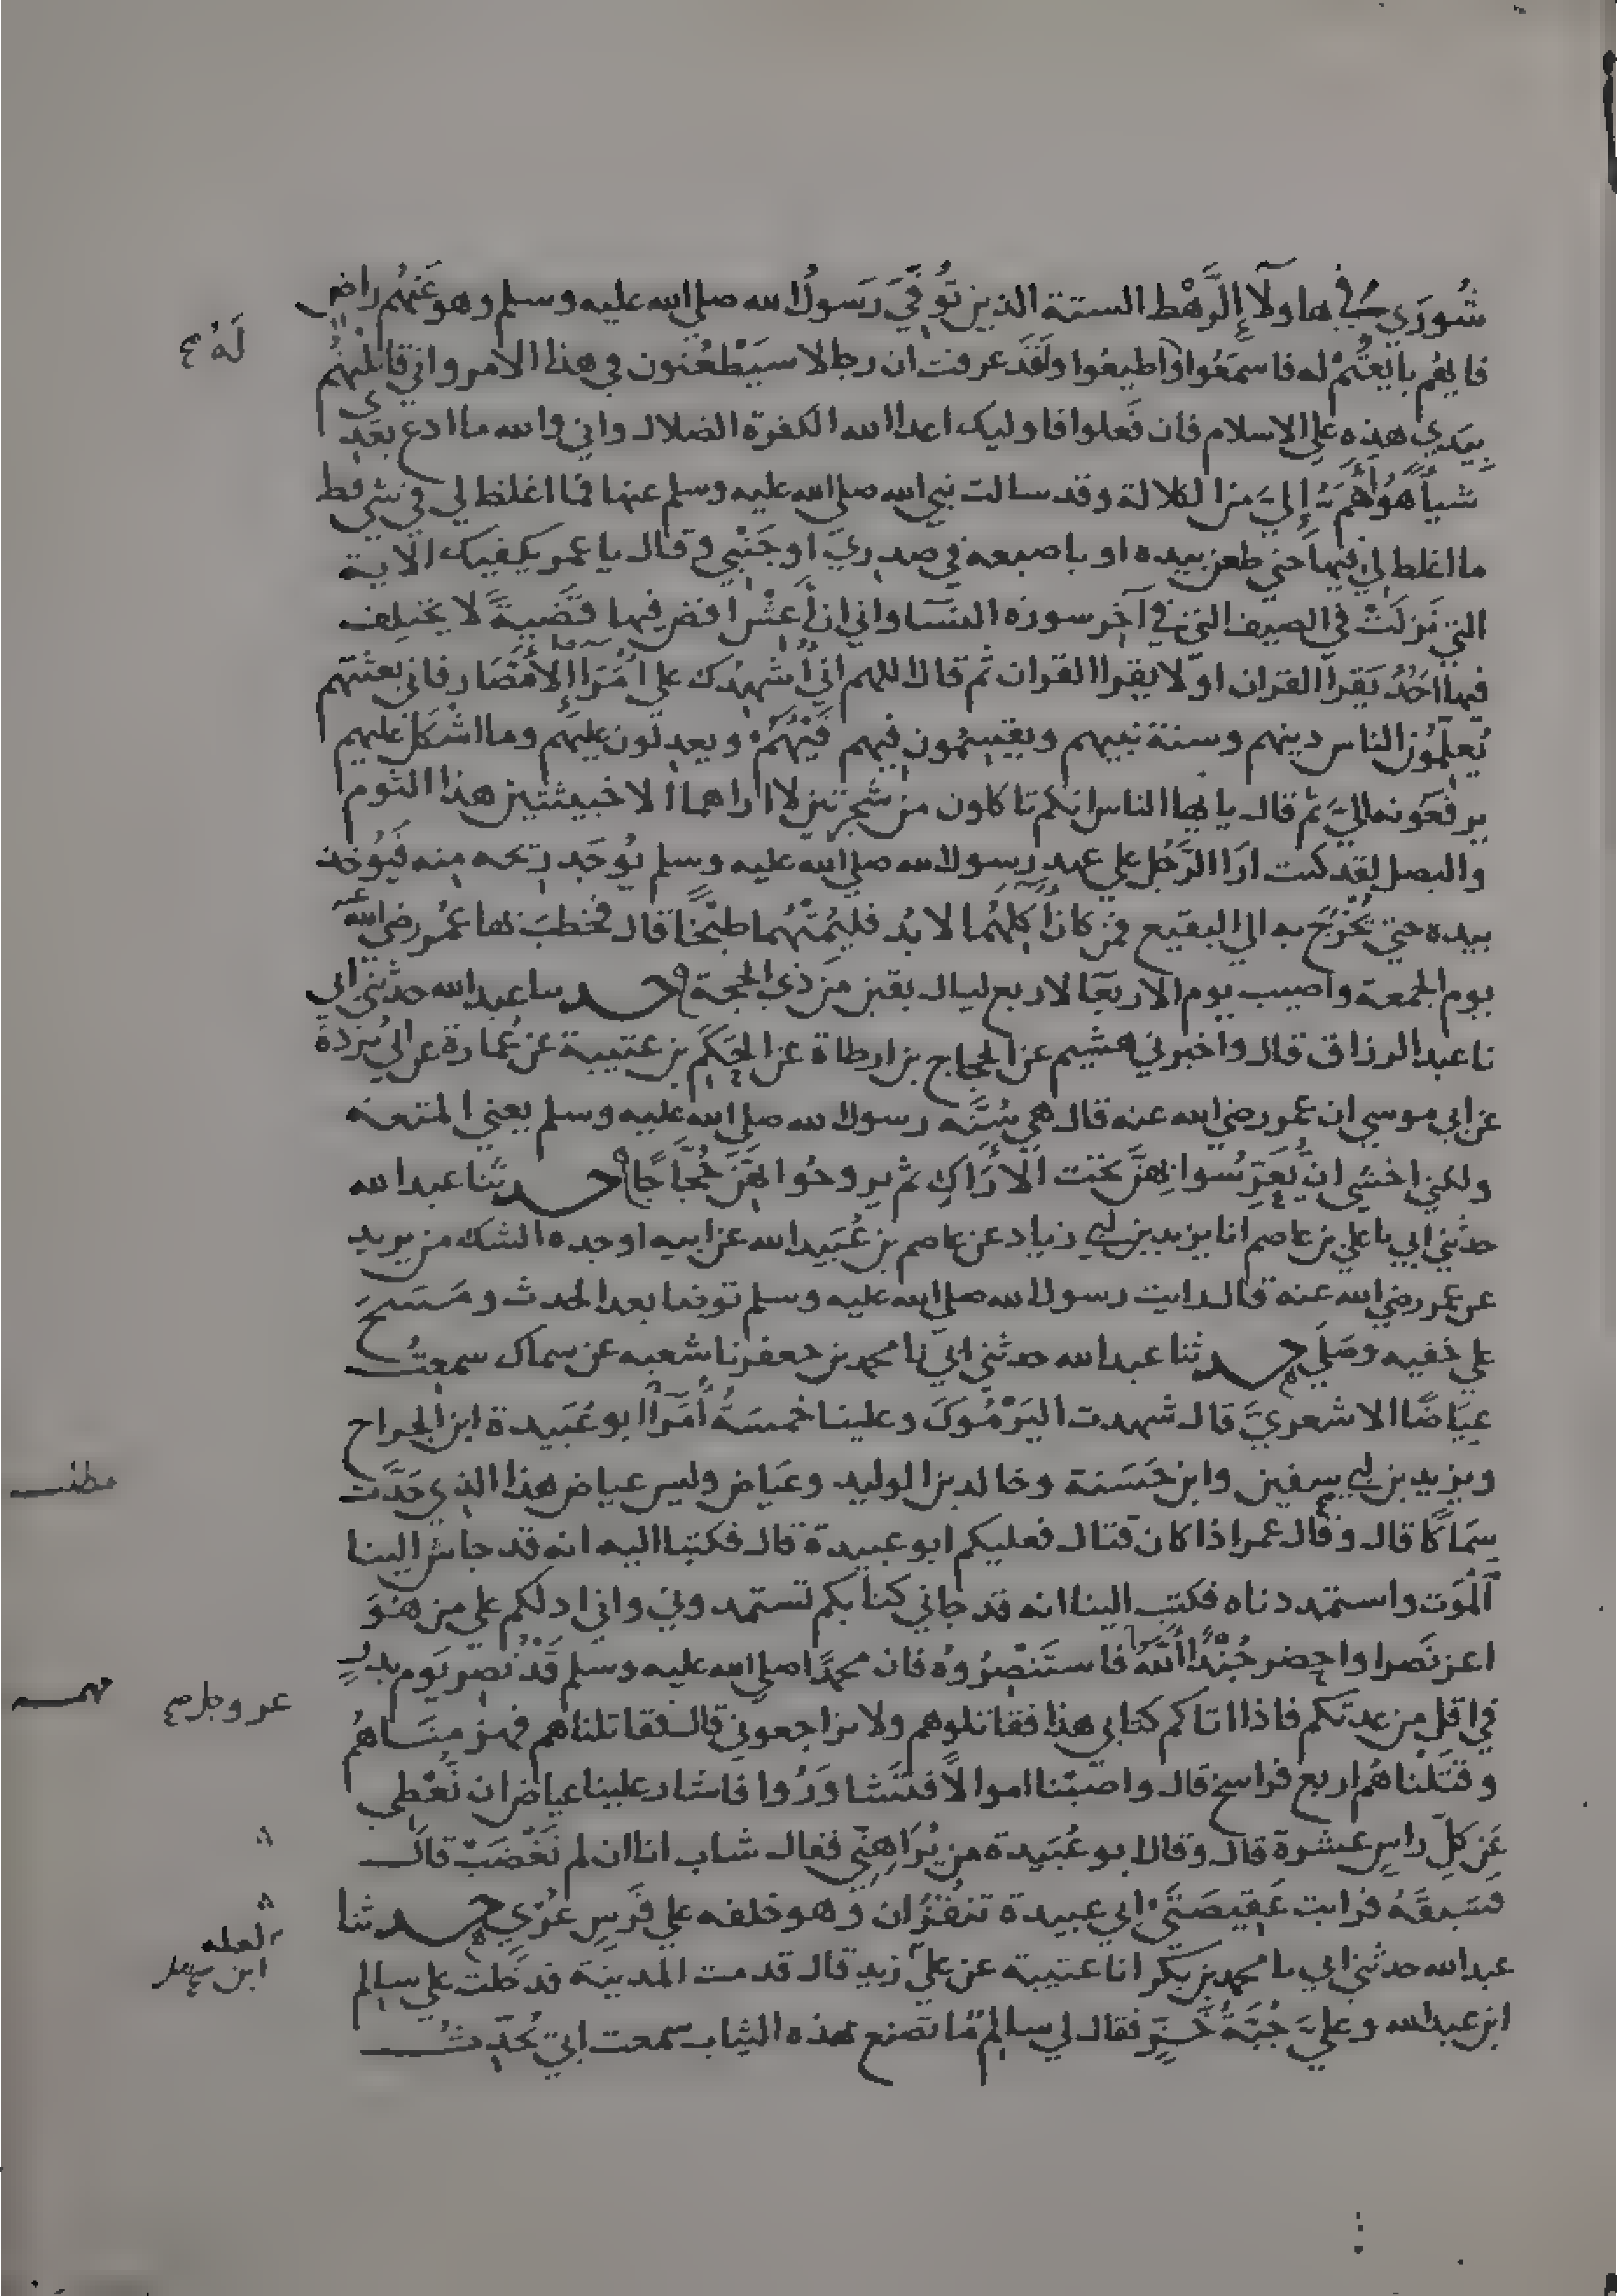 شُورَي في هاولآءِ الرَّهْط الستة الذين تُوفيَّ رَسولُ الله صلي الله عليه وسلم وهو عَنهُم راضٍ
فايهُم بايعتُمْ له فاسمَعُوا واطيعُوا ولقَد عرفت ان رجالا سيَطْعُنون في هذا الامر واني قاتلتُهم
بِيَدي هذِه علي الاسلام فان فَعلوا فاوليك اعدا الله الكفرة الضلال واني والله ما ادع بعدي
شياً هُوَ أهَمُّ إليَّ من الكلالة وقد سالت نبي الله صلي الله عليه وسلم عنها فما اغلظ لي في شي قط
ما اغلظ لي فيها حتي طعن بيده او باصبعه في صدريَ او جَنْبي وقال يا عمر يكفيك الاية
التي نَزلَتْ في الصيف التي في آخر سورة النسا واني ان أعِشْ اقض فيها قضيةً لا يختلف
فيها احَدُ يَقرأ القران او لا يقرا القران ثم قال اللهم اني أشهِدُك علي أمَرَاءِ الأمْصَار فاني بعثتهم
يُعلِّمُون الناس دينهم وسنة نبيهم ويقسِمُون فيهم فَيْهُمْ ويعدلون عليهم وما اشكل عليهم
يرفعُونه اليَّ ثم قال يا يها الناس انكم تاكلون من شجرتين لا اراهما الا خبيثتين هذا الثوم
والبصل لقد كنت ارَا الرَّجُل علي عهد رسول الله صلي الله عليه وسلم يُوجَد ريحه منه فَيُوخذ
بيده حتي يُخْرَجَ به الي البقيع فمن كان آكِلَهُما لا بُد فليُمتْهُما طبْخًا قال فخطبَ بها عمُر رضي الله عنه
يوم الجمعة واصيب يوم الاربعا لاربع ليال بقين من ذي الحجة حدسا عبد الله حدثني ابي
نا عبد الرزاق قال واخبرني هشيم عن الحجاج بن ارطاة عن الحَكَم بن عتيبة عن عُمارة عن ابي بُردة
عن ابي موسي ان عمر رضي الله عنه قال هي سُنَّه رسول الله صلي الله عليه وسلم يعني المتعه
ولكني اخشي ان يُعَرِّسُوا بهنَّ تحت الأرَاكِ ثم يروحُوا بهنَّ حُجَّاجًا حدثنا عبد الله
حدثني ابي نا علي بن عاصم انا يزيد بن ابي زياد عن عاصم بن عُبَيد الله عن ابيه او جده الشك من يزيد
عن عمر رضي الله عنه قال رايت رسول الله صلي الله عليه وسلم توضا بعد الحدث ومَسَحَ
علي خفيه وصَلَي حدثنا عبد الله حدثني ابي نا محمد بن جعفر نا شعبه عن سماك سمعتُ
عيَاضًا الاشعريَّ قال شهدت اليَرْمُوكَ وعلينا خمسَةُ أمَرَآءَ ابو عُبَيدة ابن الجراح
ويزيد بن ابي سفين وابن حَسَنة وخالد بن الوليد وعيَاض وليس عياض هذا الذي حَدَّث
سِمَاكًا قال وقال عمر اذا كان قتال فعليكم ابو عبيدة قال فكتبنا اليه انه قد جاش الينا
المْوَت واستمددناه فكتب الينا انه قد جاني كتابكم تستمدوني واني ادلكم علي من هُوَ
اعز نَصرا واحضر جُنْدًا اللَّهُ فاستَنْصِرُوهُ فان محمدًا صلي الله عليه وسلم قَدْ نُصِرَ يَوم بدرٍ
في اقل من عدتكم فاذا اتاكم كتابي هذا فقاتلوهم ولا تراجعوني قال فقاتلناهم فهزمنَاهُم
وقتَلْناهُم اربع فراسخ قال واصَبْنا اموالًا فتَشاوَرُوا فاشار علينا عياض ان نُعْطِي
عَن كلِّ راسٍ عشرة قال وقال ابو عُبَيدة من يُرَاهِنِّي فقال شاب انا ان لم تَغْضَبْ قال
فسَبقَهُ فرايت عَقِيصَتَيْ ابي عبيدة تنقُزان وهو خلفه علي فَرسٍ عُرْيٍ حدثنا
عبد الله حدثني ابي نا محمد بن بكر انا عتيبة عن عليّ زيد قال قدمت المدينة فدخلت علي سالم
ابن عبد الله وعليَّ جُبَّةُ خَزٍّ فقال لي سالم مّا تصنع بهذه الثياب سمعت ابي يُحَدِّثُ
لَهُ
مطلب
مهمه
عز وجل
لعله
ابن